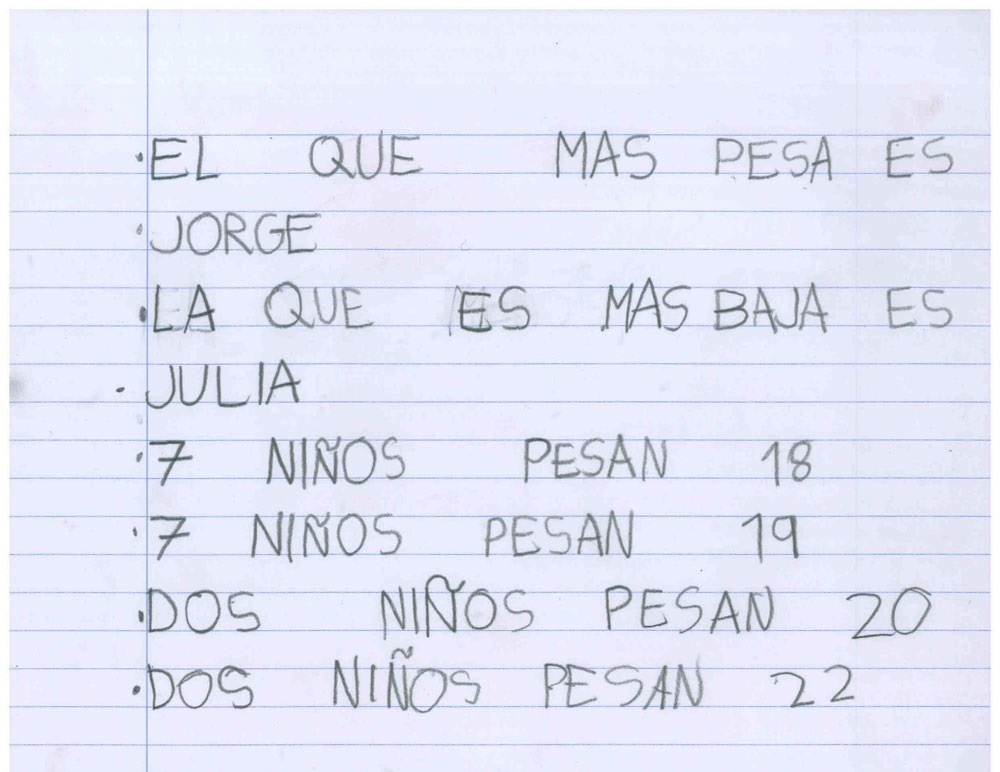 ·EL QUE MAS PESA ES
·JORGE
·LA QUE ES MAS BAJA ES
·JULIA
·7 NIÑOS PESAN 18
·7 NIÑOS PESAN 19
·DOS NIÑOS PESAN 20
·DOS NIÑOS PESAN 22